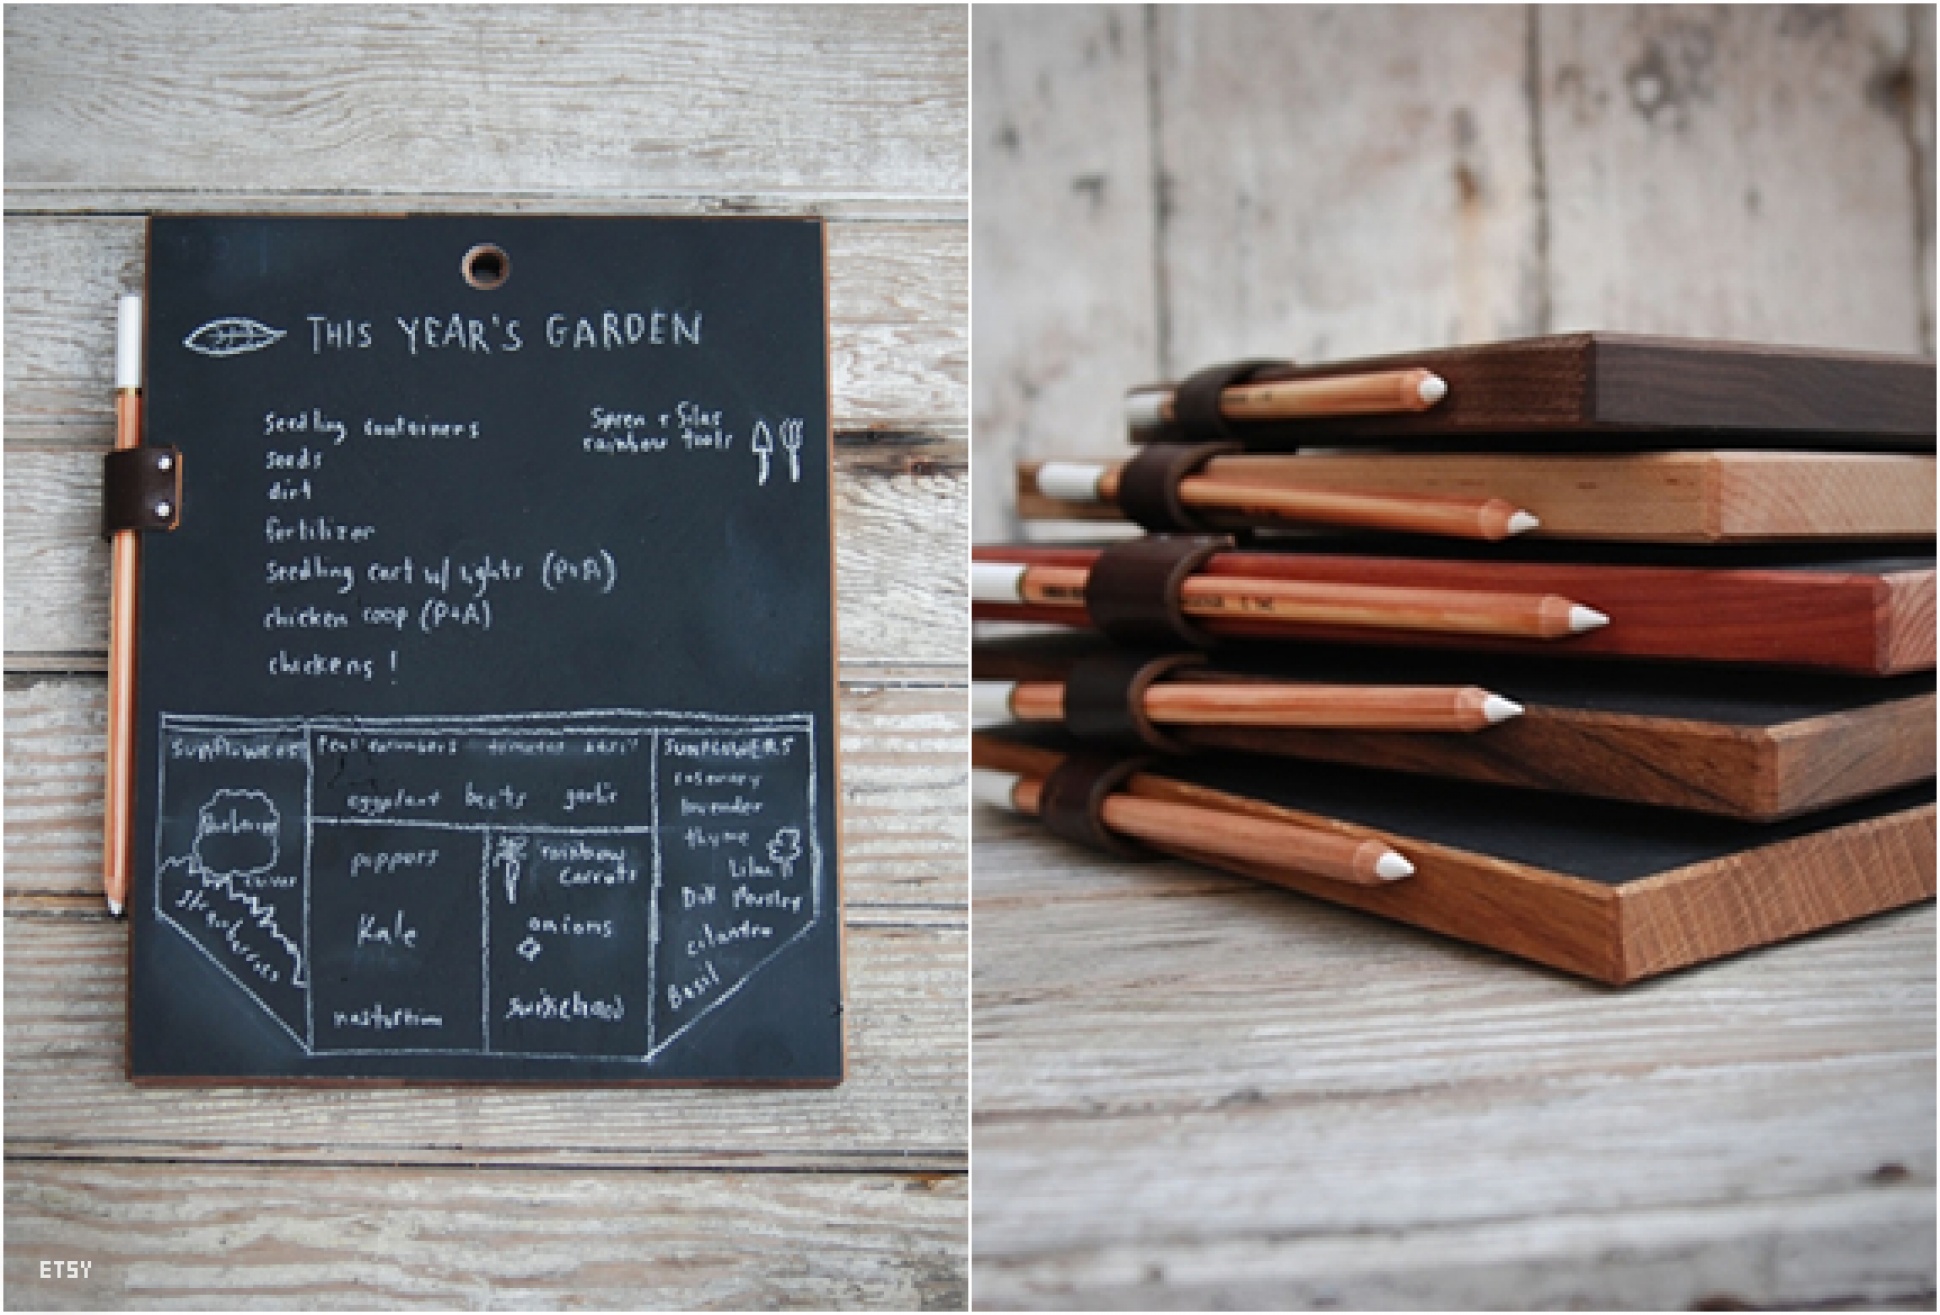 THIS YEAR'S GARDEN
Seedling containers
seeds
dirt
fertilizer
Seedling cart w/ lights (P+A)
chicken coop (P+A)
chickens!
Soren + Silas
rainbow tools
SUNFLOWERS
cucumbers tomatoes basil
eggplant beets garlic
SUNFLOWERS
rosemary
lavender
thyme
Lilac
Dill Parsley
cilantro
Basil
chives
strawberries
peppers
Kale
nasturtium
rainbow
carrots
onions
ETSY